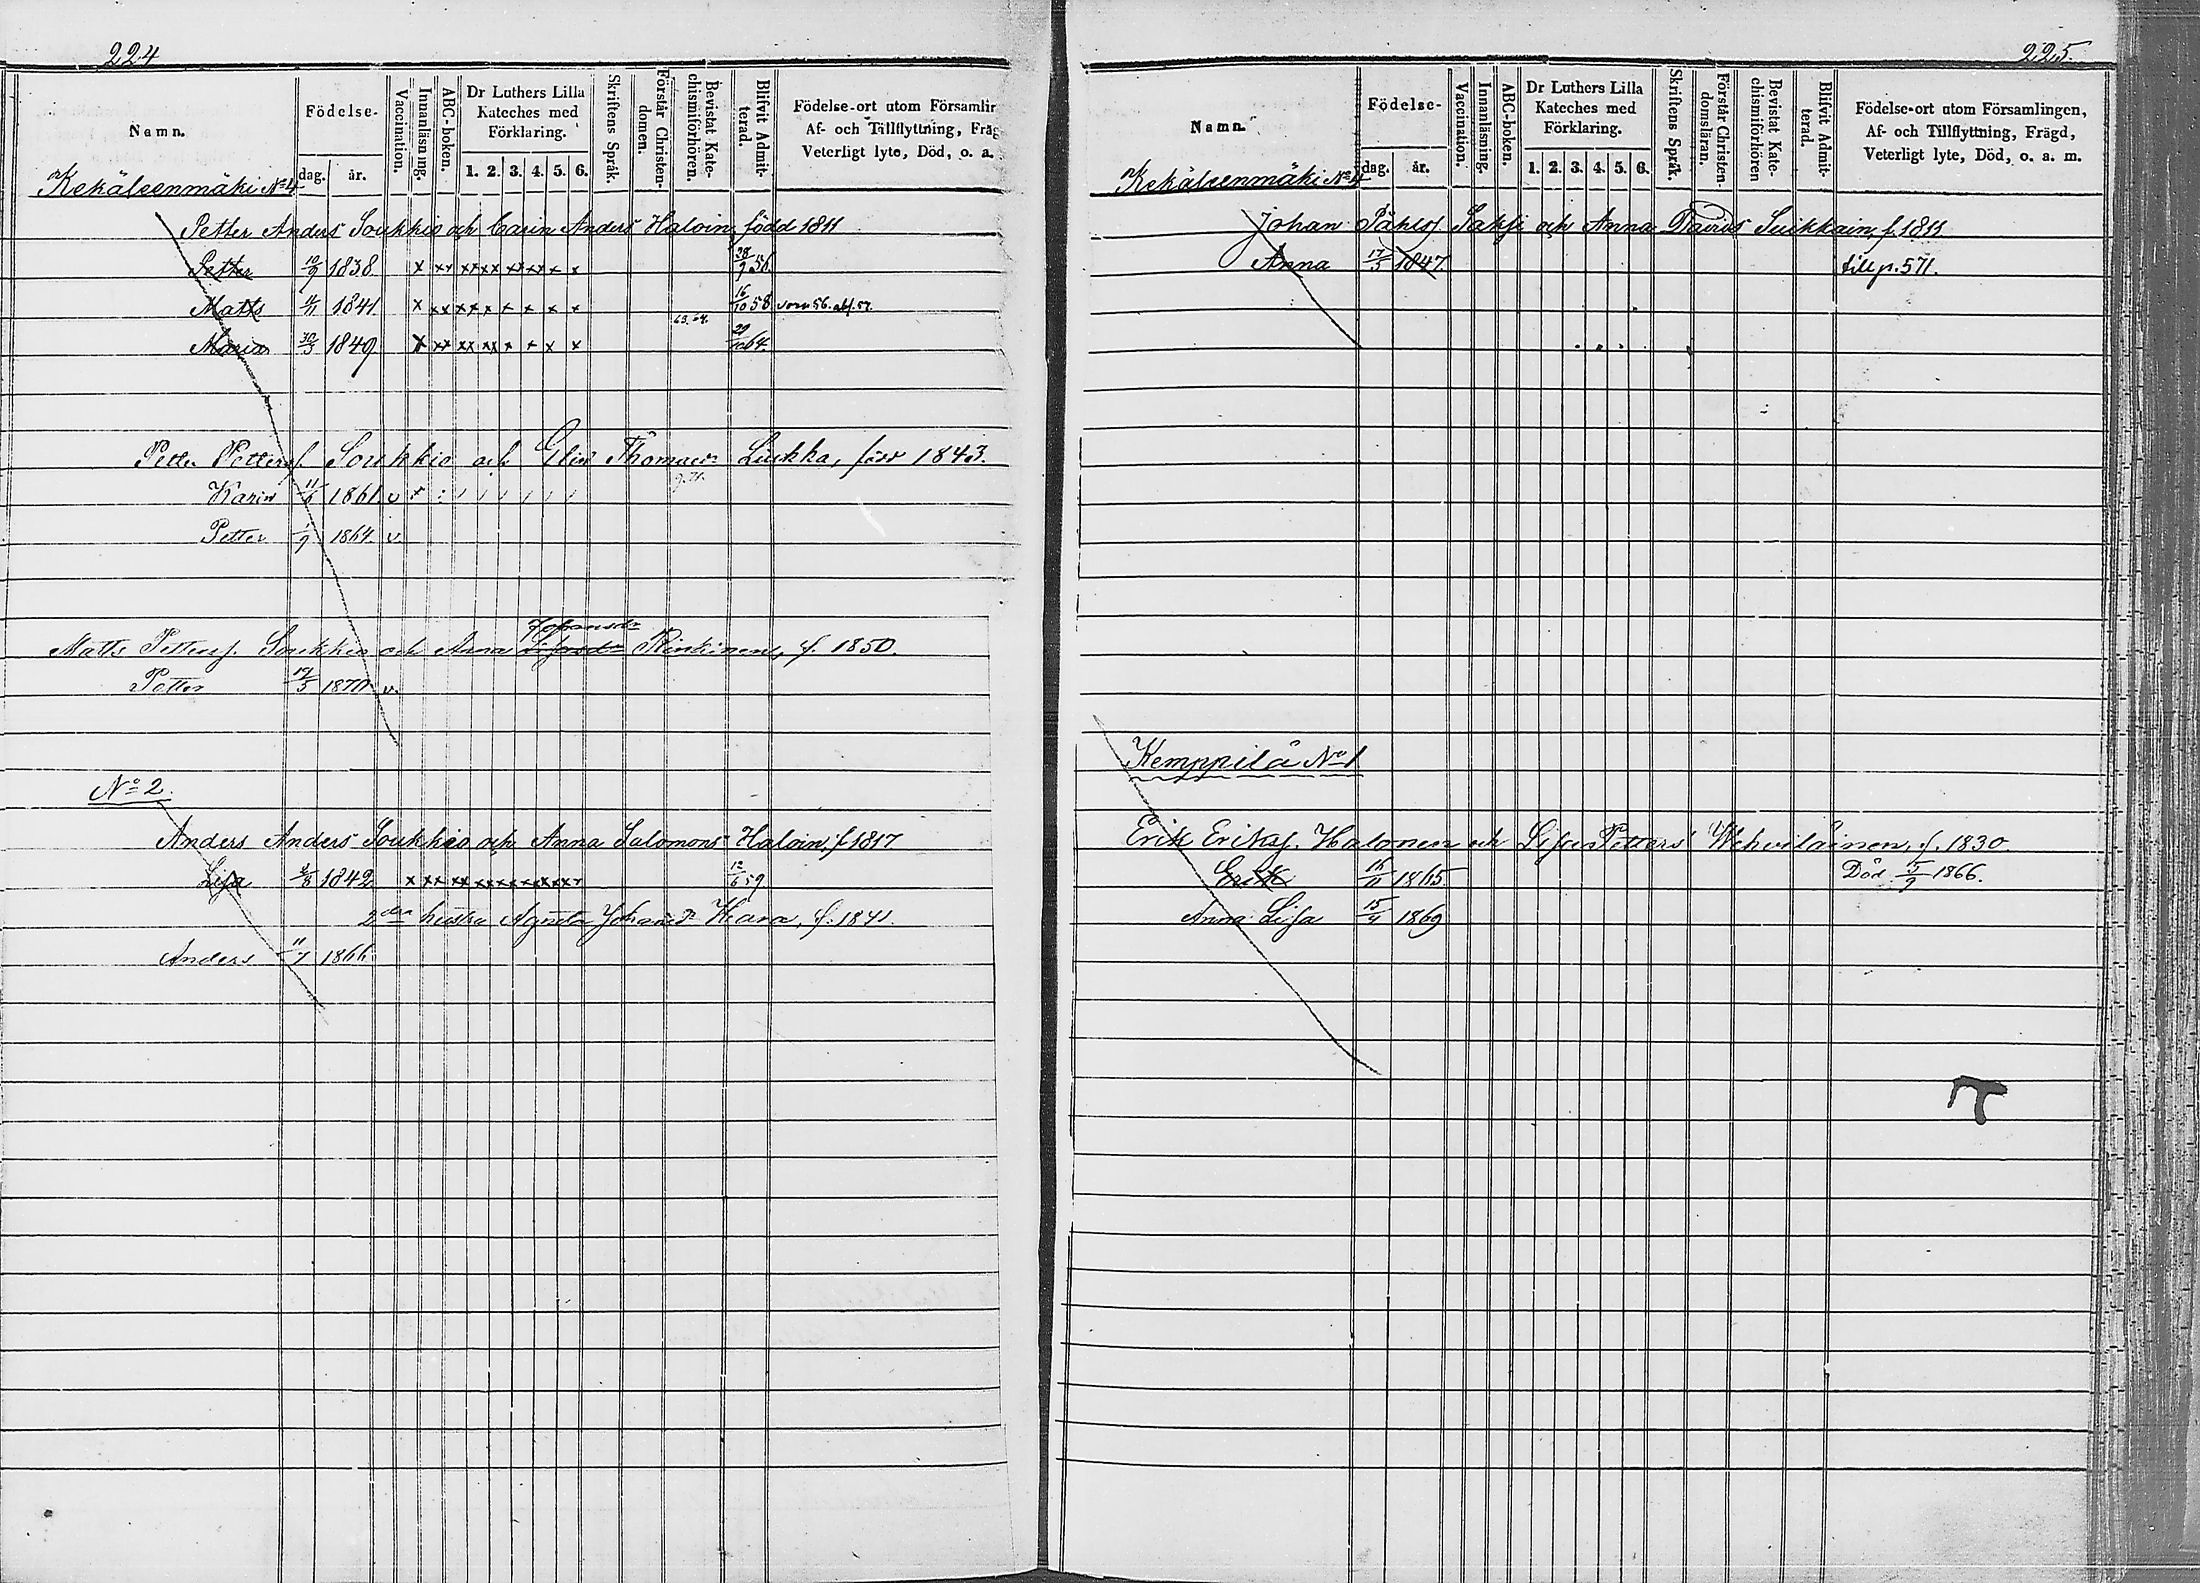 224
Namn.
Födelse-
dag. år.
Vaccination.
Innanläsning.
ABC-boken.
Dr Luthers Lilla
Kateches med
Förklaring.
1. 2. 3. 4. 5. 6.
Skriftens Språk.
Förstår Christen-
domen.
Bevistat Kate-
chismiförhören.
Blifvit Admit-
terad.
Födelse-ort utom Församlin
Af- och Tillflyttning, Fräg
Veterligt lyte, Död, o. a.
Kekäleenmäki No 4
Petter Anders Soukkio och Carin Anders Haloin, född 1811
Petter 10/9 1838. x xx xx xx xx x x 28/9 56.
Matts 4/11 1841 x xx xx x x x x x 16/10 58
63. 64.
Maria 30/3 1849 x xx xx xx x x x x 29/10 64.
Petter Petterss. Soukkio och Elin Thomasd. Luukka, född 1843.
Karin 11/6 1861. v x
Petter 1/9 1864. v.
Johansdr
Matts Petterss. Soukkio och Anna Rinkinen, f. 1850.
Petter 12/3 1870. v.
No 2.
Anders Anders Soukkio och Anna Salomons Haloin, f 1817
Lisa 2/8 1842 x xx xx xx xx xx 12/6 59
2dra hustru Agneta Johansdr Kara, f. 1841.
Anders 11/7 1866.
225.
Namn.
Födelse-
dag. år.
Vaccination.
Innanläsning.
ABC-boken.
Dr Luthers Lilla
Kateches med
Förklaring.
1. 2. 3. 4. 5. 6.
Skriftens Språk.
Förstår Christen-
domsläran.
Bevistat Kate-
chismiförhören
Blifvit Admit-
terad.
Födelse-ort utom Församlingen,
Af- och Tillflyttning, Frägd,
Veterligt lyte, Död, o. a. m.
Kekäleenmäki No 4
Johan Påhlss Saksi och Anna Davids Suikkain, f. 1811
Anna 17/5 1847. till p. 571.
Kemppilä No 1
Erik Erikss. Halonen och Lisa Petters Wehviläinen, f. 1830.
Erik 16/11 1865. Död 5/9 1866.
Anna Lisa 15/4 1869